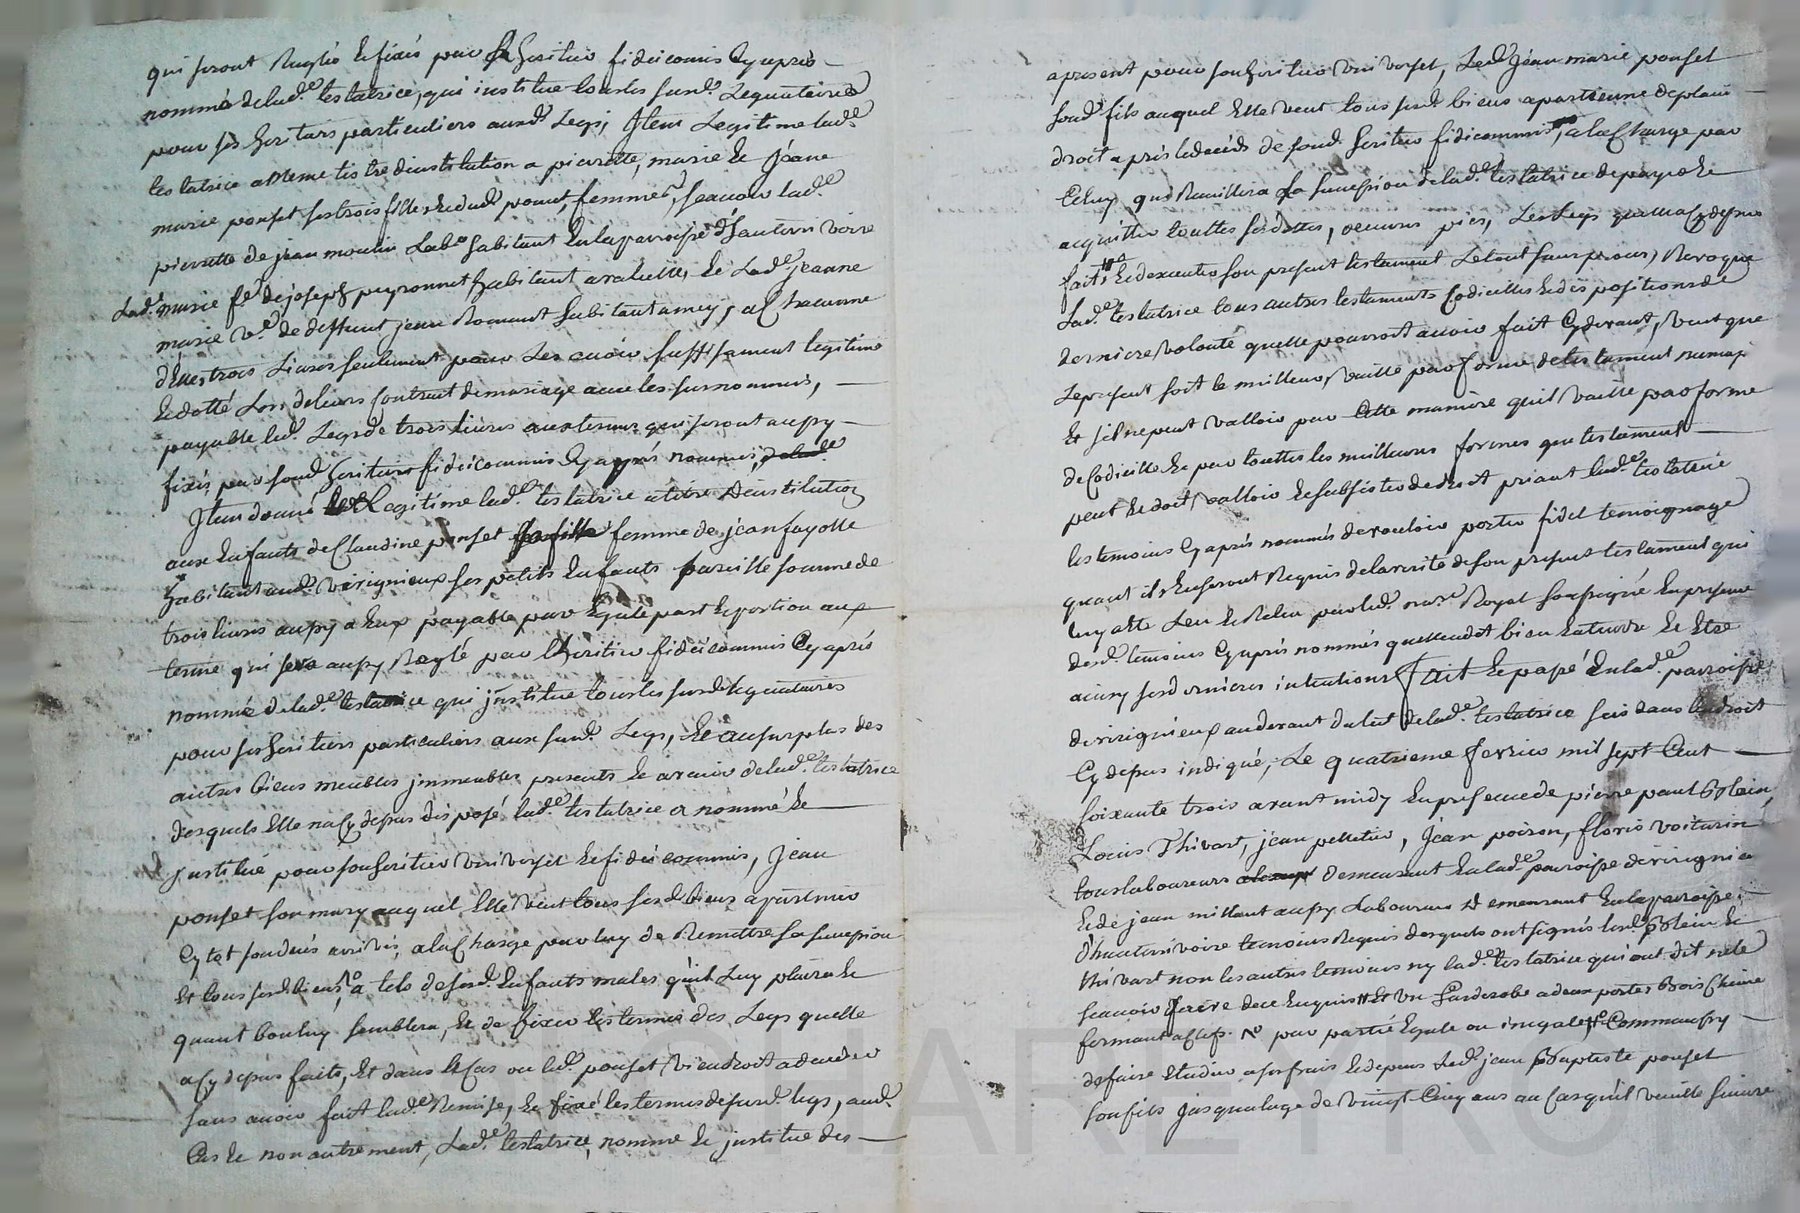 qui seront Reglés Et fixés par Sr heritier fideicomis Cy aprés
nommé de lad.e testatrice, qui institue tous les susd.s Legataires
pour ses heritiers particuliers auxd.s Legs, Item Legitime lad.e
testatrice a meme tistre d'institution a pierrette, marie Et Jeane
marie ponset ses trois filles Et dud. ponset, femmes, scavoir lad.e
pierrette de jean moulin Lab.r habitant En la parroisse d'hauterri voire
Lad. marie f.e de joseph peyronnet habitant a valeille, Et Lad.e jeanne
marie v.e de deffunt jean habitant a mey, a Chacunne
d'elles trois Livres seulement pour Les avoir suffisament legitimé
Et dotté Lors de leurs Contract de mariage avec les surnommés,
payable led. Legs de trois livres aux termes qui seront aussy
fixés par sond. heritier fideicommis Cy aprés nommé, de lad.e
Item donne Et Legitime lad.e testatrice a titre d'institution
aux Enfants de Claudine ponset sa fille femme de jean fayolle
habitant aud. virignieux ses petits Enfants pareille somme de
trois livres aussy a Eux payable par Egale part Et portion aux
terme qui sera aussy Reglé par l'heritier fideicommis Cy aprés
nommé de lad.e testatrice qui justitue tous les susd. legataires
pour ses heritiers particuliers aux susd. Legs, Et au surplus des
autres biens meubles jmmeubles presents Et avenir de lad.e testatrice
desquels Elle n'a Cy depus disposé lad.e testatrice a nommé Et
justitué pour son heritier universel Et fideicommis, Jean
ponset son mary auquel Elle veut tous ses d. biens apartenir
Cy tot son decés arrivé, a la Charge par luy de Remettre sa succession
Et tous sesd. biens, a tels de sesd. Enfants males qu'il Luy plaira Et
quant bon luy semblera, Et de fixer les termes des Legs quelle
a Cy depus faits, Et dans le Cas ou led. ponset viendroit a deceder
sans avoir fait lad.e Remise, Et fixé les termes desusd. legs, aud.
Cas Et non autrement, Lad.e testatrice, nomme Et justitue des
apresent pour son heritier universel, Led. Jean marie ponset
sond. fils auquel Elle veut tous sesd. biens apartienne de plain
droit aprés le decés de sond. heritier fidicommis, a la Charge par
Celuy qui Recuillera La succession de lad.e testatrice de payer Et
acquitter touttes ses dettes, oeuvres pies, Les Legs quelle a Cy depus
faits Et d'executer son present testament Le tout sans procés, Revoque
Lad.e testatrice tous autres testaments Codicilles Et dispositions de
derniere volonté quelle pourroit avoir fait Cy devant, veut que
Le present soit le meilleur, vaille par forme de testament
Et s'il ne peut valloir par Cette maniere quil vaille par forme
de Codicille Et par touttes les meilleures formes que testament
peut Et doit valloir Et subsister de droit priant lad.e testatrice
les temoins Cy aprés nommés de vouloir porter fidel temoignage
quant ils En seront Requis de la verité de son present testament qui
luy a Eté Leu Et Relu par led. no.re Royal soussigné En presence
desd. temoins Cy aprés nommés quelle a dit bien Entendre Et Etre
ainsy ses dernieres intentions Fait Et passé En lad.e parroisse
de virignieux au devant du lit de lad.e testatrice scis dans L'endroit
Cy depus indiqué, Le quatrieme fevrier mil sept Cent
soixante trois avant midy En presence de pierre paul
Louis Thivart, jean pelletier, Jean poizon, floris voiturin
tous laboureurs demeurant En lad.e parroisse de virignieu
Et de jean millant aussy Laboureur demeurant En la parroisse
d'hauterrivoire temoins Requis desquels ont signés Lesd. Et
thivart non les autres temoins ny lad.e testatrice qui ont dit ne le
scavoir faire de ce Enquis Et un Garderobe a deux portes bois Chéne
fermant a Clefs. par partie Egale ou inegale, Comme aussy
de faire Etudier a ses frais Et depens Led. jean Baptiste ponset
son fils jusqua l'age de vingt Cinq ans au Cas qu'il veuille suivre
CHAREYRON